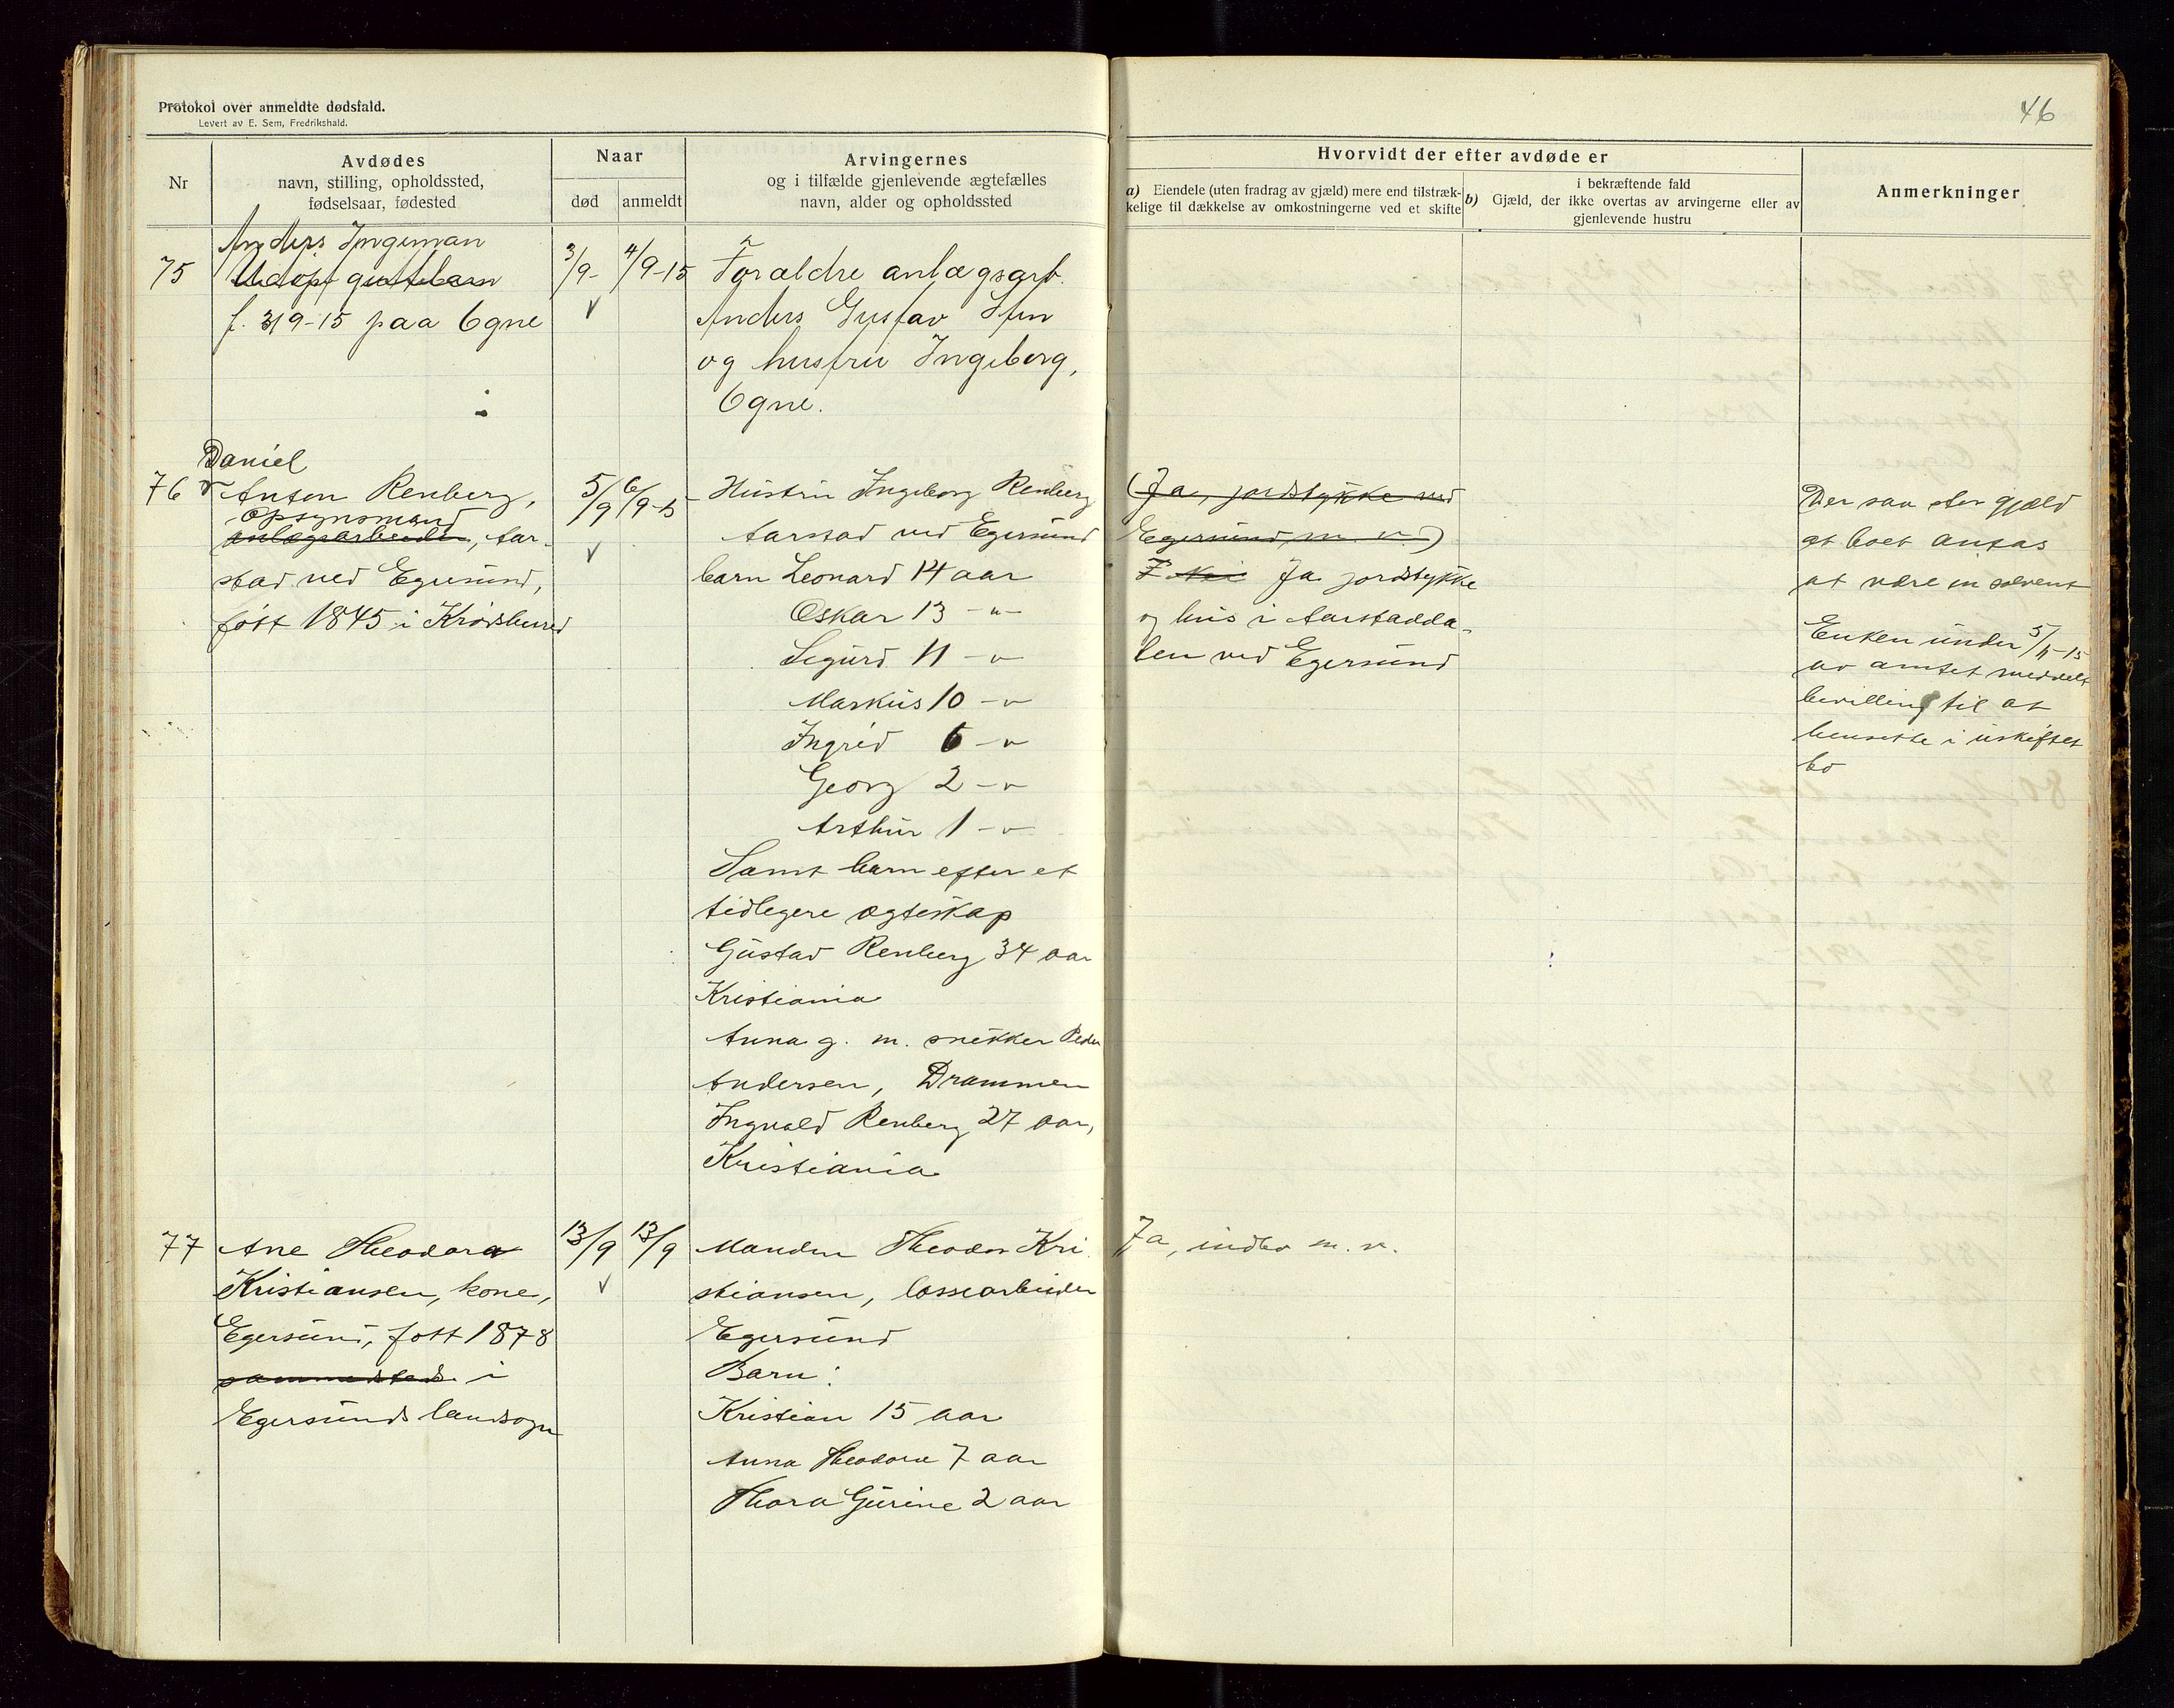 Protokol over anmeldte dødsfald.
Levert av E. Sem, Fredrikshald.
46
Nr
Avdødes
navn, stilling, opholdssted,
fødselsaar, fødested
Naar
død
anmeldt
Arvingernes
og i tilfælde gjenlevende ægtefælles
navn, alder og opholdssted
Hvorvidt der efter avdøde er
a) Eiendele (uten fradrag av gjæld) mere end tilstræk-
kelige til dækkelse av omkostningerne ved et skifte
i bekræftende fald
b) Gjæld, der ikke overtas av arvingerne eller av
gjenlevende hustru
Anmerkninger
75
Anders Ingeman
Udøpt guttebarn
f. 3/9-15 paa Ogne
3/9-
4/9-15
Forældre anlægsarb.
Anders Gustav
og hustru Ingeborg,
Ogne.
76
Daniel
Anton Renberg,
opsynsmand
anlægsarbeider, Aar-
stad ved Egersund,
født 1845 i Krødsherred
5/9
6/9-15
Hustru Ingeborg Renberg
Aarstad ved Egersund
barn Leonard 14 aar
Oskar 13 -"-
Sigurd 11 -"-
Markus 10 -"-
Ingrid 6 -"-
Georg 2 -"-
Arthur 1 -"-
Samt barn efter et
tidligere ægteskap
Gustav Renberg 34 aar
Kristiania
Anna g. m. snekker Peder
Andersen, Drammen
Ingvald Renberg 27 aar,
Kristiania
(Ja, jordstykke ved
Egersund m. v.)
Nei Ja jordstykke
og hus i Aarstadda-
len ved Egersund
Der saa stor gjæld
at boet antas
at være insolvent
Enken under 5/11-15
av amtet meddelt
bevilling til at
hensitte i uskiftet
bo
77
Ane Theodora
Kristiansen, kone,
Egersund, født 1878
sammesteds i
Egersunds landsogn
13/9
13/9
Manden Theodor Kri-
stiansen, lossearbeider
Egersund
Barn:
Kristian 15 aar
Anna Theodora 7 aar
Thora Gurine 2 aar
Ja, indbo m. v.